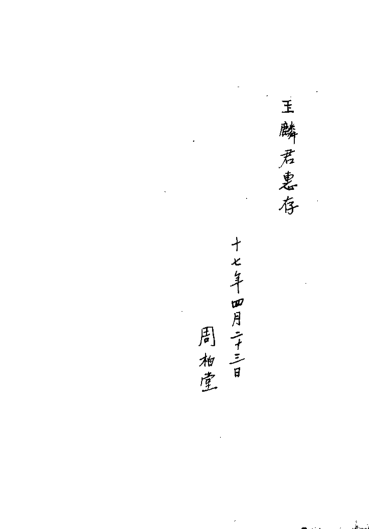 玉麟君惠存
十七年四月二十三日
周柏堂